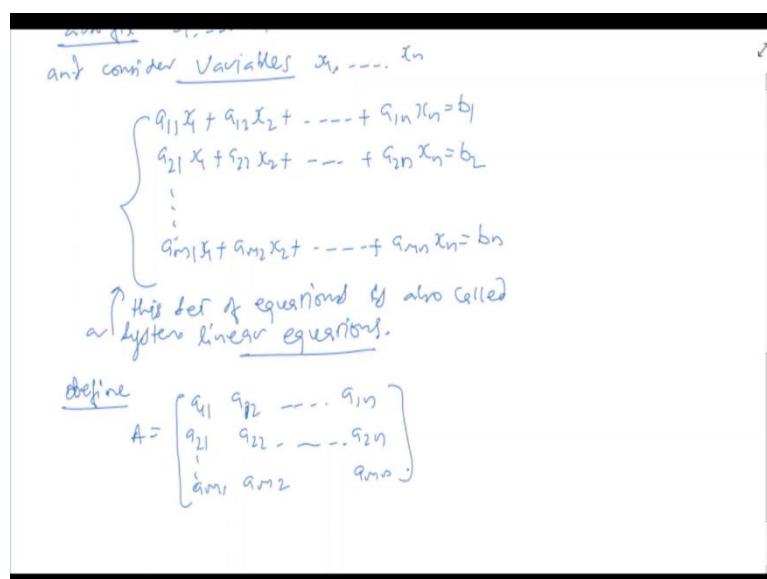 and consider Variables x₁, .... xₙ
a₁₁x₁ + a₁₂x₂ + ..... + a₁ₙxₙ = b₁
a₂₁x₁ + a₂₂x₂ + .... + a₂ₙxₙ = b₂
⋮
aₘ₁x₁ + aₘ₂x₂ + ..... + aₘₙxₙ = bₙ
this set of equations is also called
a system linear equations.
define
A = [ a₁₁ a₁₂ ..... a₁ₙ
a₂₁ a₂₂ ..... a₂ₙ
⋮
aₘ₁ aₘ₂ aₘₙ ]